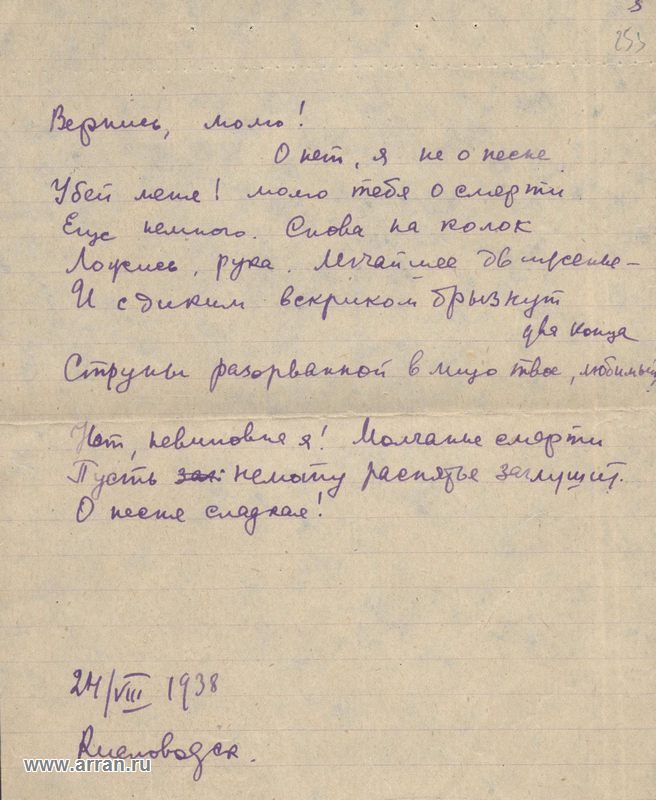 253
Вернись, молю!
О нет, я не о песне
Убей меня! молю тебя о смерти
Еще немного. Снова на колок
Ложись, рука. Легчайшее движенье –
И с диким вскриком брызнут
два конца
Струны разорванной в лицо твое, любимый
Нет, невиновна я! Молчанье смерти
Пусть немоту распятье заглушит.
О песня сладкая!
24/VIII 1938
Кисловодск.
www.arran.ru